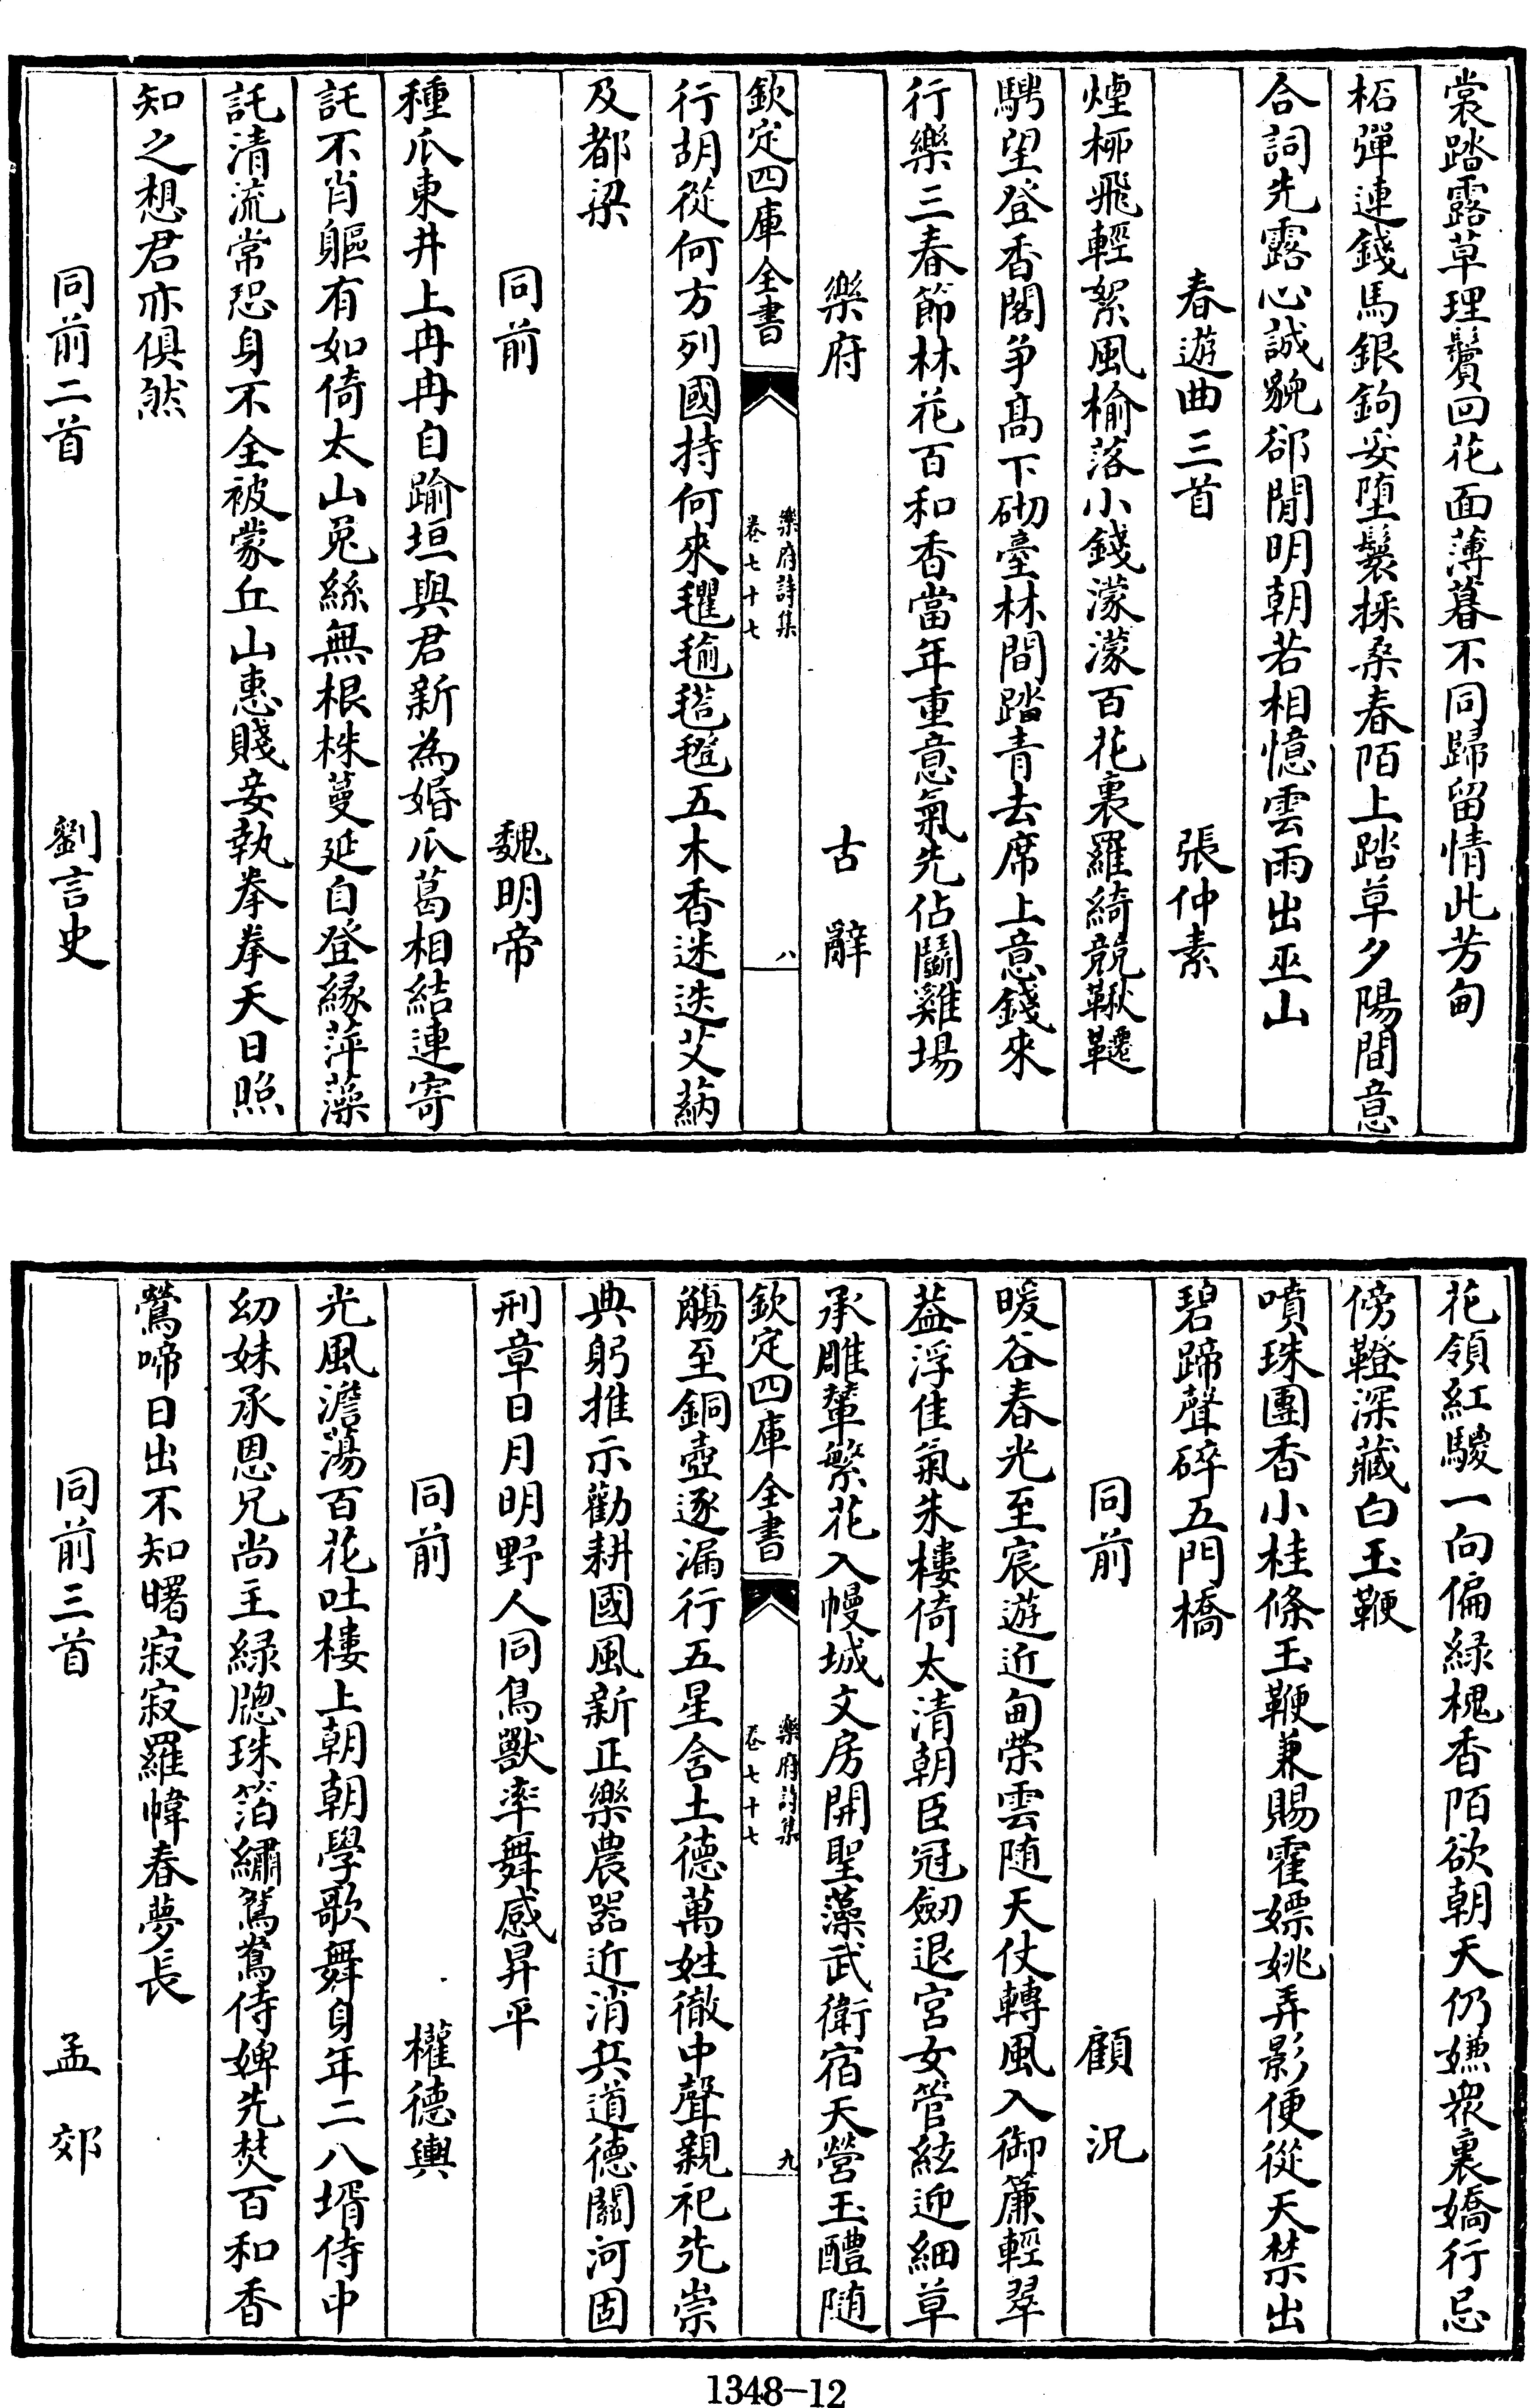 裳踏露草理鬢回花面薄暮不同歸留情此芳甸
柘彈連錢馬銀鉤妥墮鬟採桑春陌上踏草夕陽間意
合詞先露心誠貌郤閒明朝若相憶雲雨出巫山
春遊曲三首　張仲素
煙柳飛輕絮風榆落小錢濛濛百花裏羅綺競鞦韆
騁望登香閣爭髙下砌臺林間踏青去席上意錢來
行樂三春節林花百和香當年重意氣先佔鬬雞場
樂府　古辭
欽定四庫全書　樂府詩集　卷七十七　八
行胡從何方列國持何來氍毹㲪㲪五木香迷迭艾蒳
及都梁
同前　魏明帝
種瓜東井上冉冉自踰垣與君新為婚瓜葛相結連寄
託不肖軀有如倚太山兎絲無根株蔓延自登緣萍藻
託清流常恐身不全被蒙丘山惠賤妾執拳拳天日照
知之想君亦俱然
同前二首　劉言史
花頷紅騣一向偏緑槐香陌欲朝天仍嫌衆裏嬌行忌
傍鞾深藏白玉鞭
噴珠團香小桂條玉鞭兼賜霍嫖姚弄影便從天禁出
碧蹄聲碎五門橋
同前　顧況
暖谷春光至宸遊近甸榮雲随天仗轉風入御簾輕翠
葢浮佳氣朱樓倚太清朝臣冠劒退宫女管絃迎細草
承雕輦繁花入幔城文房開聖藻武衛宿天營玉醴随
欽定四庫全書　樂府詩集　卷七十七　九
觴至銅壺逐漏行五星含土德萬姓徹中聲親祀先崇
典躬推示勸耕國風新正樂農器近消兵道德關河固
刑章日月明野人同鳥獸率舞感昇平
同前　權德輿
光風澹蕩百花吐樓上朝朝學歌舞身年二八壻侍中
幼妹承恩兄尚主緑牎珠箔繡鴛鴦侍婢先焚百和香
鶯啼日出不知曙寂寂羅幃春夢長
同前三首　孟郊
1348-12